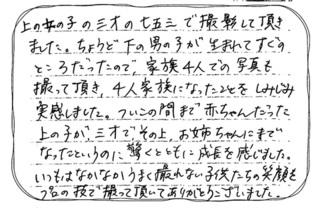 上の女の子の三才の七五三で撮影して頂き
ました。ちょうど下の男の子が生まれてすぐの
ところだったので、家族4人での写真も
撮って頂き、4人家族になったことをしみじみ
実感しました。ついこの間まで赤ちゃんだった
上の子が、三才でその上、お姉ちゃんにまで
なったというのに驚くとともに成長を感じました。
いつもはなかなかうまく撮れない子供たちの笑顔を
プロの技で撮って頂いてありがとうございました。